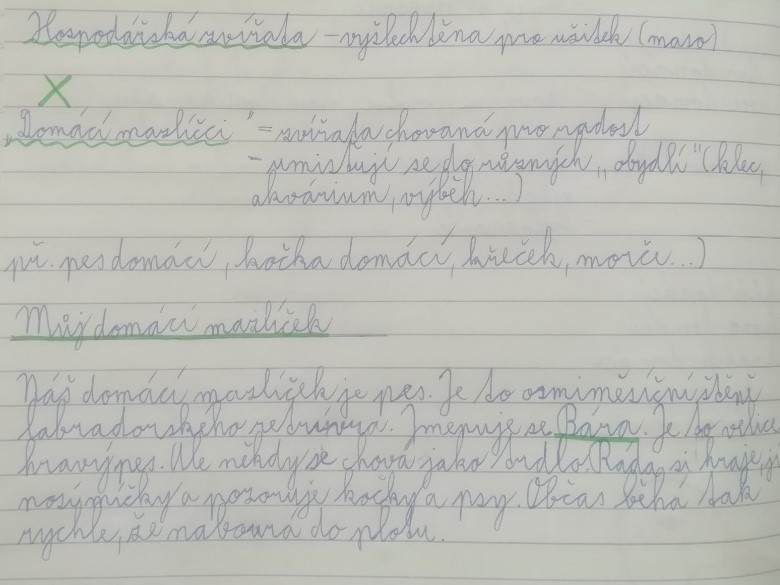 Hospodářská zvířata - vyšlechtěna pro užitek (maso)
X
„Domácí mazlíčci" = zvířata chovaná pro radost
- umisťují se do různých „obydlí" (klec,
akvárium, výběh...)
př. pes domácí, kočka domácí, křeček, morče...)
Můj domácí mazlíček
Náš domácí mazlíček je pes. Je to osmiměsíční štěně
labradorského retrívra. Jmenuje se Bára. Je to velice
hravý pes. Ale někdy se chová jako trdlo. Ráda si hraje,
nosí míčky a pozoruje kočky a psy. Občas běhá tak
rychle, že nabourá do plotu.